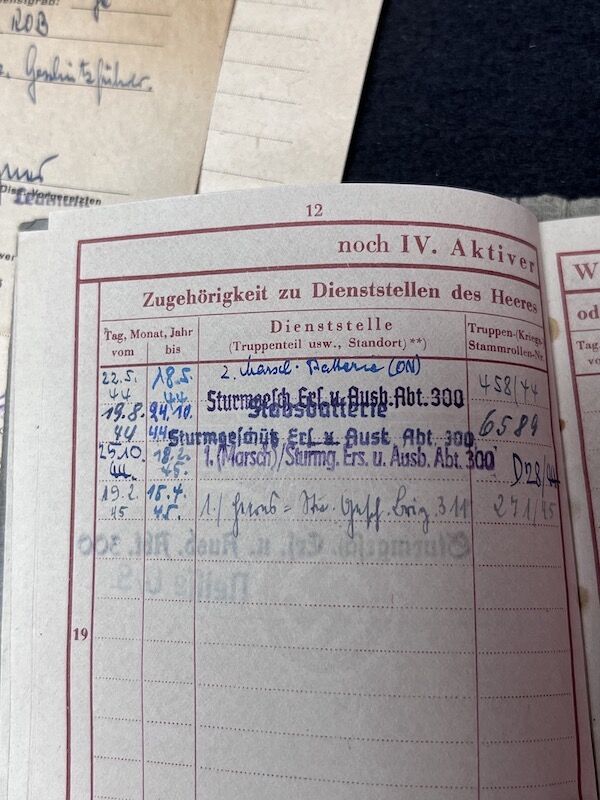 ROB
Geschützführer.
12
noch IV. Aktiver
Zugehörigkeit zu Dienststellen des Heeres
Tag, Monat, Jahr
vom bis
Dienststelle
(Truppenteil usw., Standort) **)
Truppen-(Kriegs-)
Stammrollen-Nr.
22.5. 44 18.5. 44 2. Marsch-Batterie (ON)
Sturmgesch. Ers. u. Ausb. Abt. 300 458/44
19.8. 44 24.10. 44 Stabsbatterie
Sturmgeschütz Ers. u. Ausb. Abt. 300 6589
25.10. 44. 18.2. 45. 1. (Marsch)/Sturmg. Ers. u. Ausb. Abt. 300 D28/44
19.2. 45 15.4. 45. 1./Heeres = Stu. Gesch. Brig. 311 271/45
19
W
od
Tag,
vom